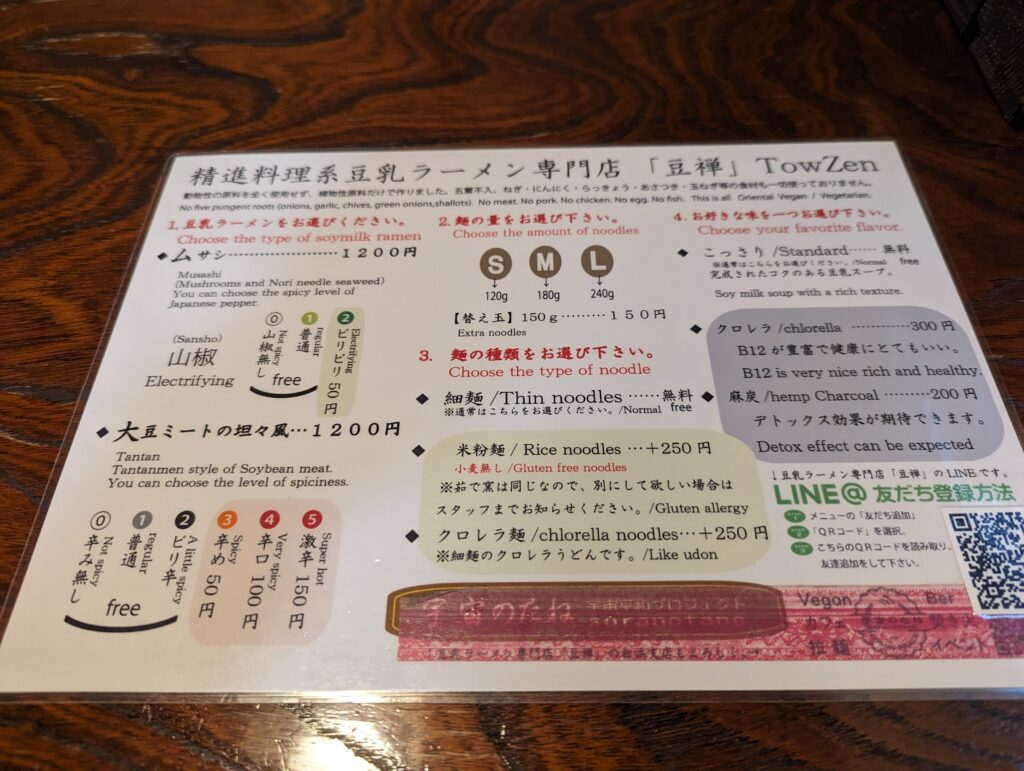 精進料理系豆乳ラーメン専門店 「豆禅」TowZen
動物性の原料を全く使用せず、植物性原料だけで作りました。五葷不入、ねぎ・にんにく・らっきょう・あさつき・玉ねぎ等の食材も一切使っておりません。
No five pungent roots (onions, garlic, chives, green onions,shallots). No meat. No pork. No chicken. No egg. No fish. This is all Oriental Vegan / Vegetarian.
1. 豆乳ラーメンをお選びください。
Choose the type of soymilk ramen
◆ムサシ…………………1200円
Musashi
(Mushrooms and Nori needle seaweed)
You can choose the spicy level of
Japanese pepper.
(Sansho)
山椒
Electrifying
⓪ Not spicy 山椒無し
1 regular 普通
2 Electrifying ピリピリ 50円
free
◆大豆ミートの坦々風…1200円
Tantan
Tantanmen style of Soybean meat.
You can choose the level of spiciness.
⓪ Not spicy 辛み無し
1 regular 普通
2 A little spicy ピリ辛
3 Spicy 辛め 50円
4 Very spicy 辛口 100円
5 Super hot 激辛 150円
free
2. 麺の量をお選び下さい。
Choose the amount of noodles
S M L
120g 180g 240g
【替え玉】150g………150円
Extra noodles
3. 麺の種類をお選び下さい。
Choose the type of noodle
◆ 細麺/Thin noodles ……無料
※通常はこちらをお選びください。/Normal free
◆ 米粉麺/Rice noodles …+250円
小麦無し/Gluten free noodles
※茹で窯は同じなので、別にして欲しい場合は
スタッフまでお知らせください。/Gluten allergy
◆ クロレラ麺/chlorella noodles…+250円
※細麺のクロレラうどんです。/Like udon
4. お好きな味を一つお選び下さい。
Choose your favorite flavor.
◆ こっさり/Standard…… 無料
※通常はこちらをお選びください。/Normal free
完成されたコクのある豆乳スープ。
Soy milk soup with a rich texture.
◆ クロレラ/chlorella …………300円
B12が豊富で健康にとてもいい。
B12 is very nice rich and healthy.
◆ 麻炭/hemp Charcoal ………200円
デトックス効果が期待できます。
Detox effect can be expected
↓豆乳ラーメン専門店「豆禅」のLINEです。
LINE@ 友だち登録方法
メニューの「友だち追加」
「QRコード」を選択、
こちらのQRコードを読み取り、
友達追加をして下さい。
宇宙のたね 宇宙平和プロジェクト
soranotane
Vegan Bar
カフェ
イベント